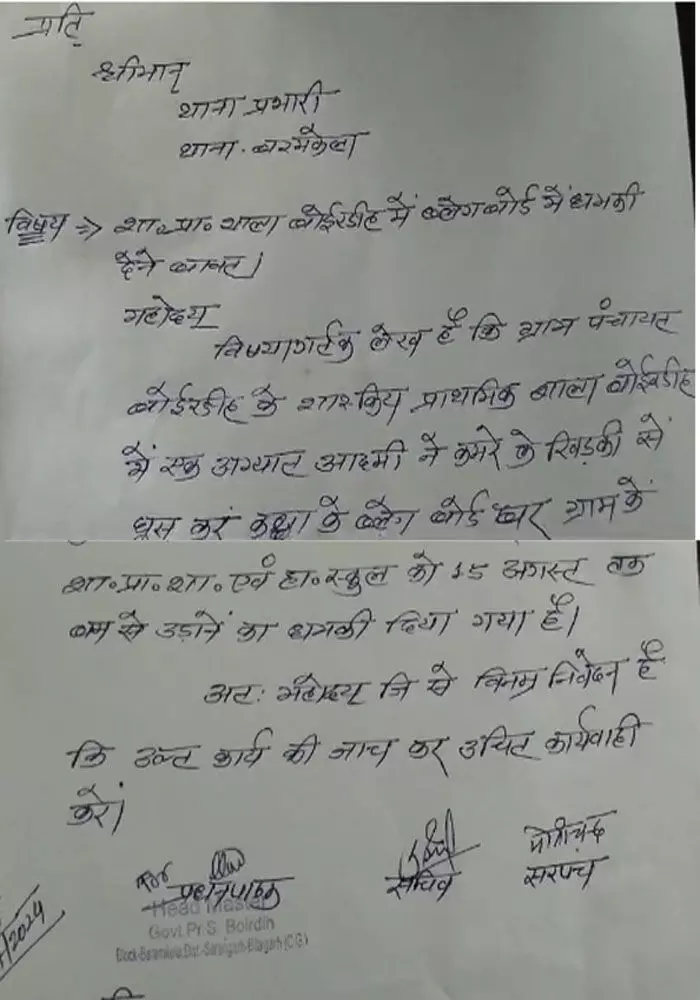 प्रति,
श्रीमान्
थाना प्रभारी
थाना. बरमकेला
विषय => शा०प्रा० शाला बोईरडीह में ब्लेग बोर्ड में धमकी
देने बाबत।
महोदय
विषयार्गतकृ लेख है कि ग्राम पंचायत
बोईरडीह के शास्किय प्राथमिक शाला बोईरडीह
में एक अग्यात आदमी ने कमरे के खिड़की से
घुस कर कक्षा के ब्लेग बोर्ड पर ग्राम के
शा०प्रा०शा० एवं हा०स्कुल को 15 अगस्त तक
बम से उड़ाने का धमकी दिया गया है।
अतः महोदय जि से विनम्र निवेदन है
कि उक्त कार्य की जाच कर उचित कार्यवाही
करें।
प्रधानपाठक सचिव सरपंच
Head Master
Govt.Pr.S. Boirdih
Block-Baramkela, Dist.-Sarangarh-Bilaigarh (C.G.)
/2024